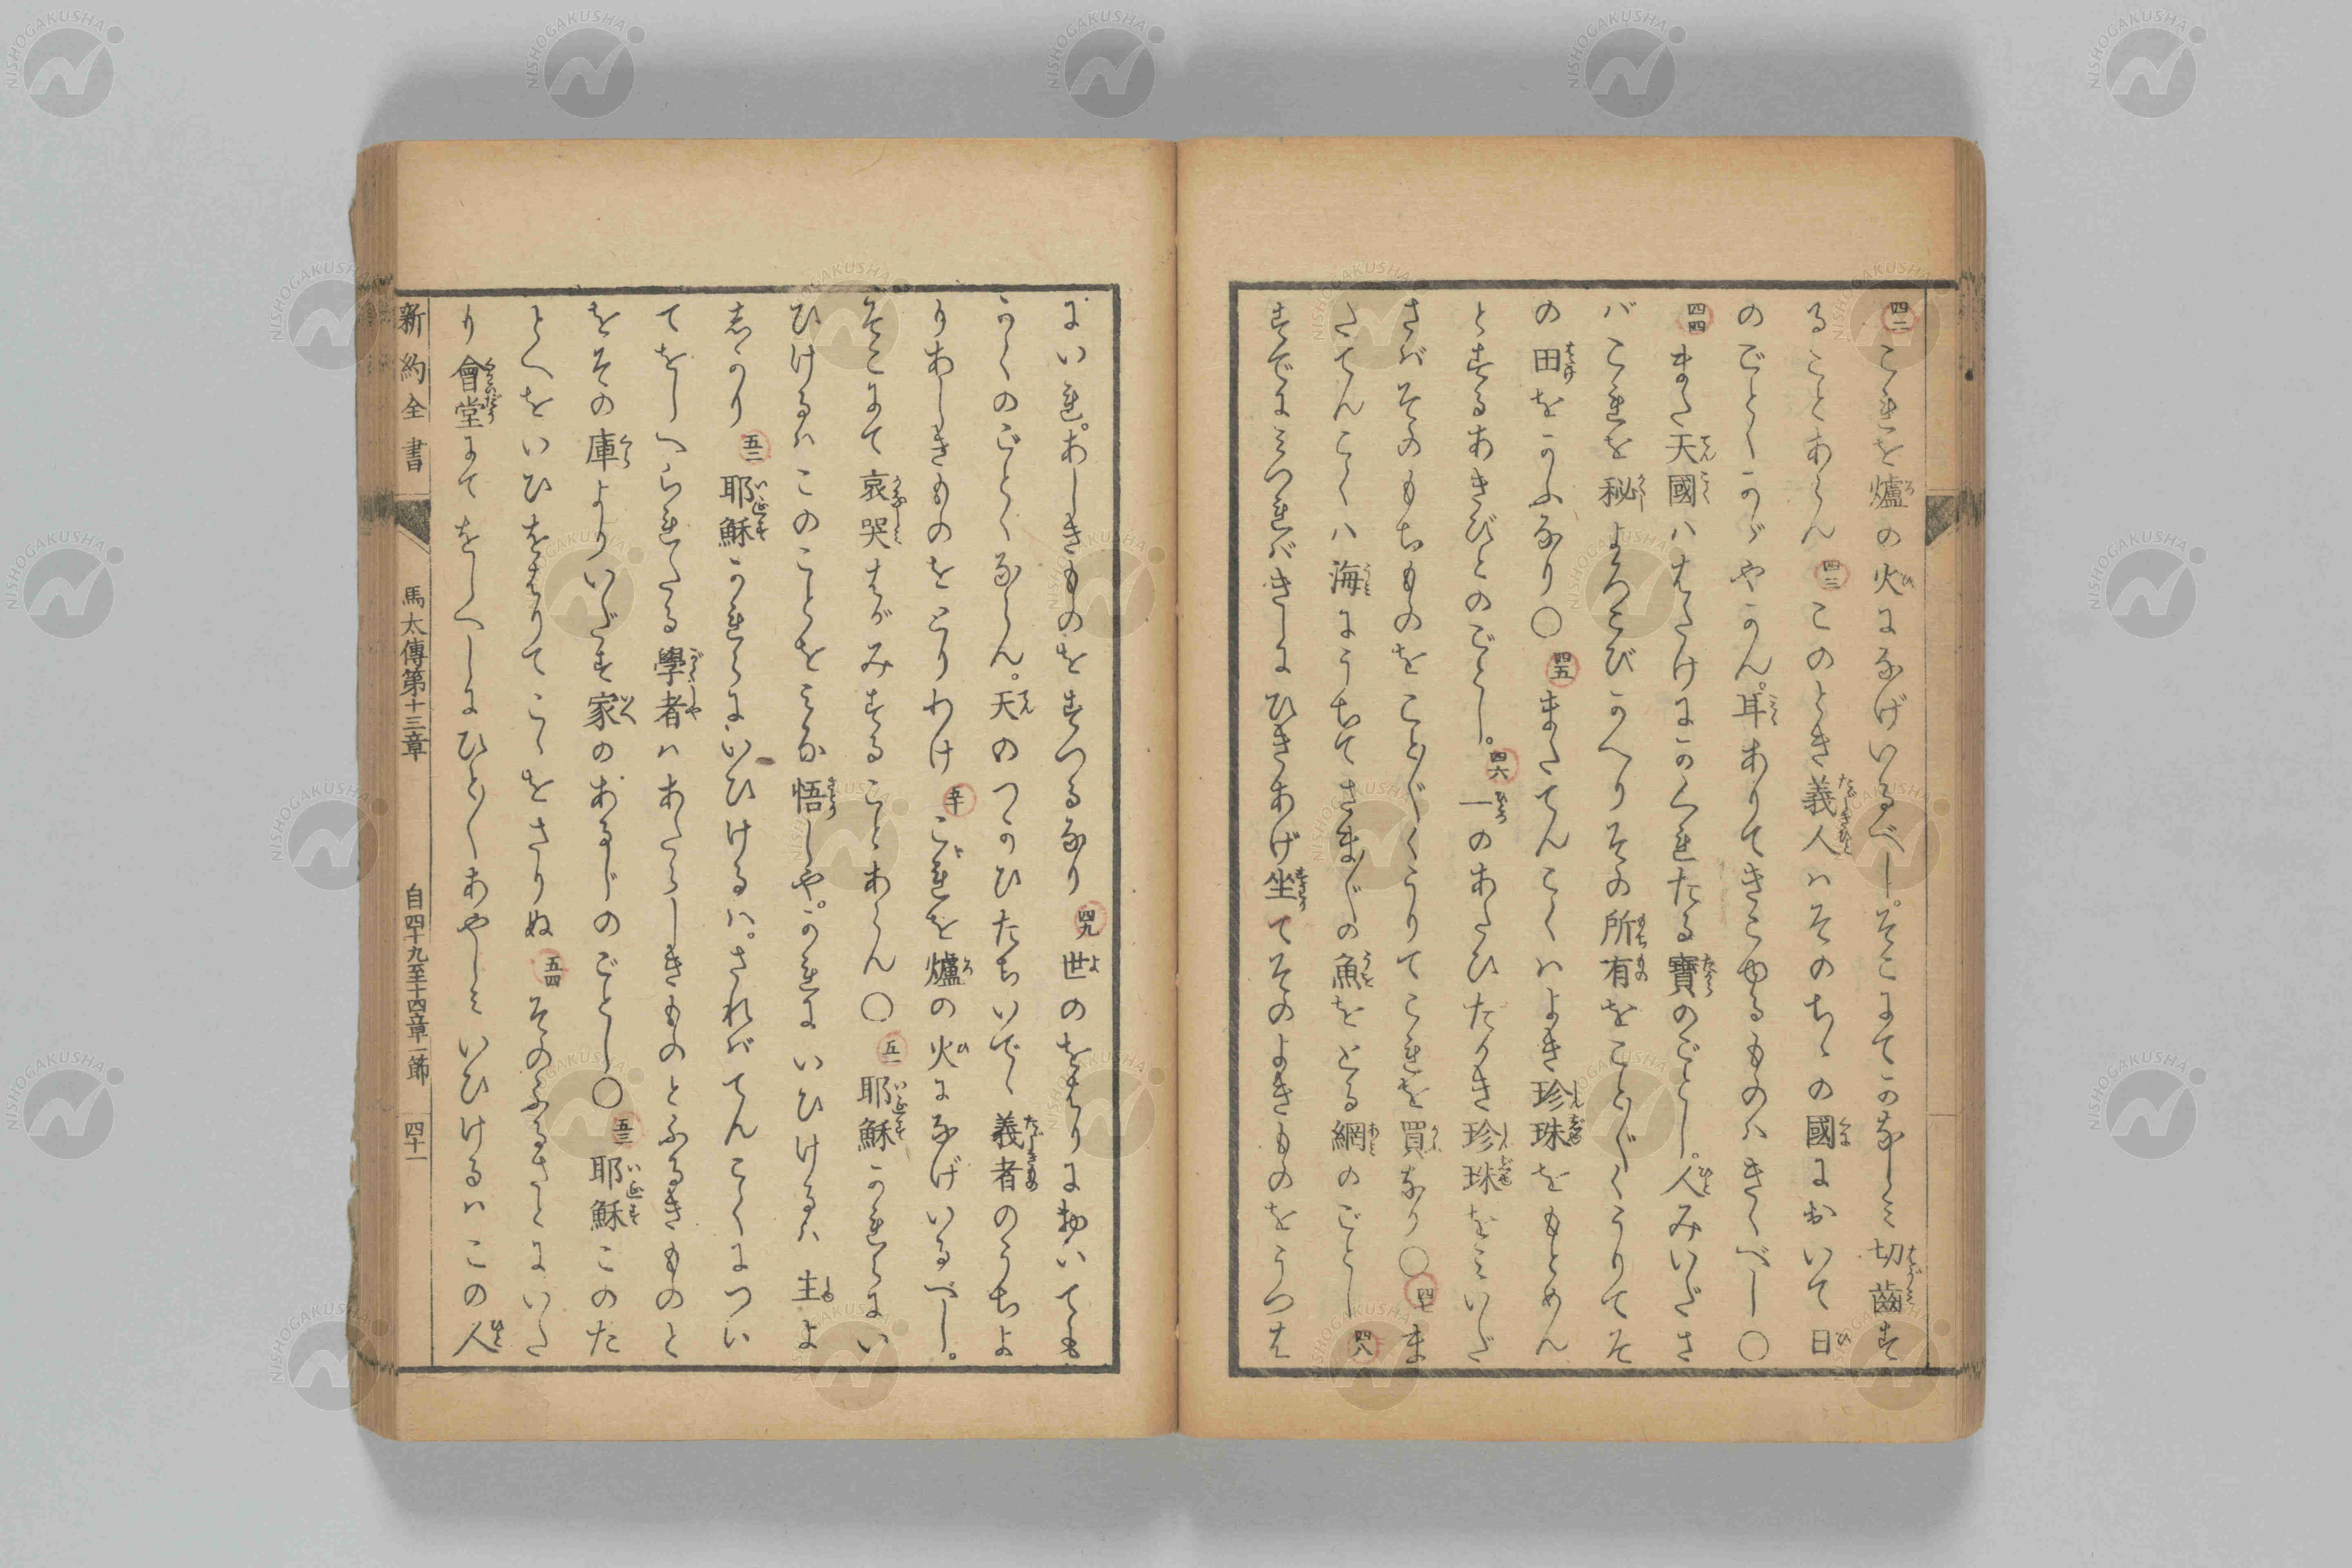 四二 これを爐の火になげいるべし。そこにてかなしミ切齒す
ることあらん 四三 このとき義人ハそのちゝの國において日
のごとくかゞやかん。耳ありてきこゆるものハきくべし〇
四四 また天國ハはたけにかくれたる寶のごとし。人みいださ
バこれを秘よろこびかへりその所有をこと〴〵くうりてそ
の田をかふなり〇 四五 またてんこくハよき珍珠をもとめん
とするあきびとのごとし。 四六 一のあたひたかき珍珠をミいだ
さバそのもちものをこと〴〵くうりてこれを買なり〇 四七 ま
たてんこくハ海にうちてさま〴〵の魚をとる網のごとし 四八
すでにミつればきしにひきあげ坐てそのよきものをうつは
にいれ。あしきものをすつるなり 四九 世のをはりにおいても
かくのごとくならん。天のつかひたちいでゝ義者のうちよ
りあしきものをとりわけ 五十 これを爐の火になげいるべし。
そこにて哀哭はがみすることあらん〇 五一 耶穌かれらにい
ひけるハこのことをミな悟しや。かれにいひけるハ主よ
志かり 五二 耶穌かれらにいひけるハ。されバてんこくについ
てをしへられたる學者ハあたらしきものとふるきものと
をその庫よりいだす家のあるじのごとし〇 五三 耶穌このた
とへをいひをはりてこゝをさりぬ 五四 そのふるさとにいた
り會堂にてをしへしにひと〳〵あやしミいひけるハこの人
新約全書 馬太傳第十三章 自四十九至十四章一節 四十一